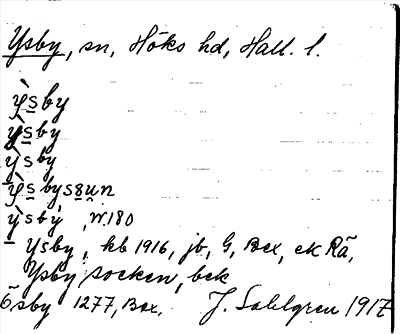 Ysby, sn, Höks hd, Hall. l.
ỳsby
ỳsby
ỳsby
ỳsbyssun
ỳsby, W.180
Ysby, kb 1916, jb, G, Bex, ek Rä,
Ysby socken, bek
Ôsby 1277, Bex. J. Sahlgren 1917